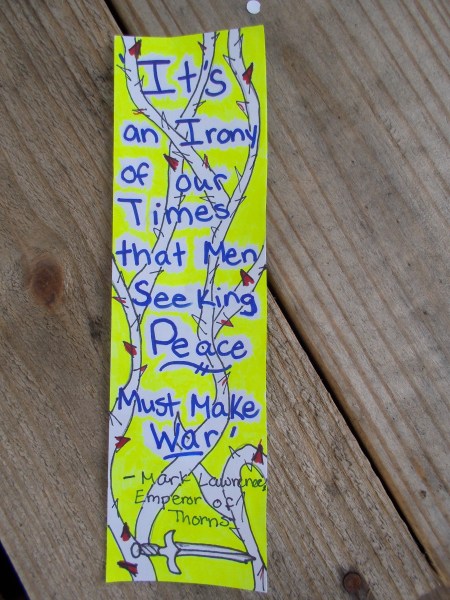 'It's
an Irony
of our
Times
that Men
Seeking
Peace
Must Make
War'
- Mark Lawrence,
Emperor of
Thorns-